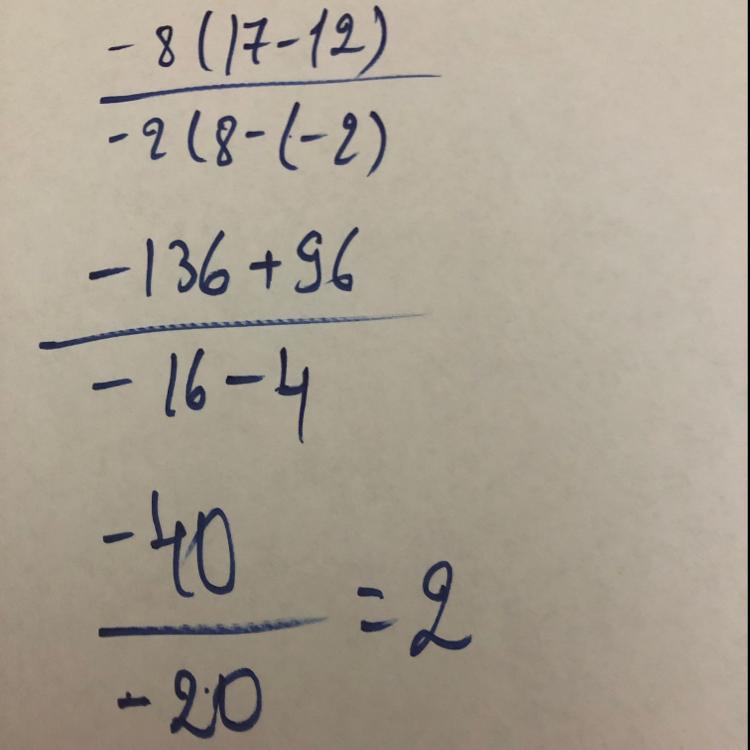 -8(17-12)
-2(8-(-2)
-136+96
-16-4
-40
-20
=2